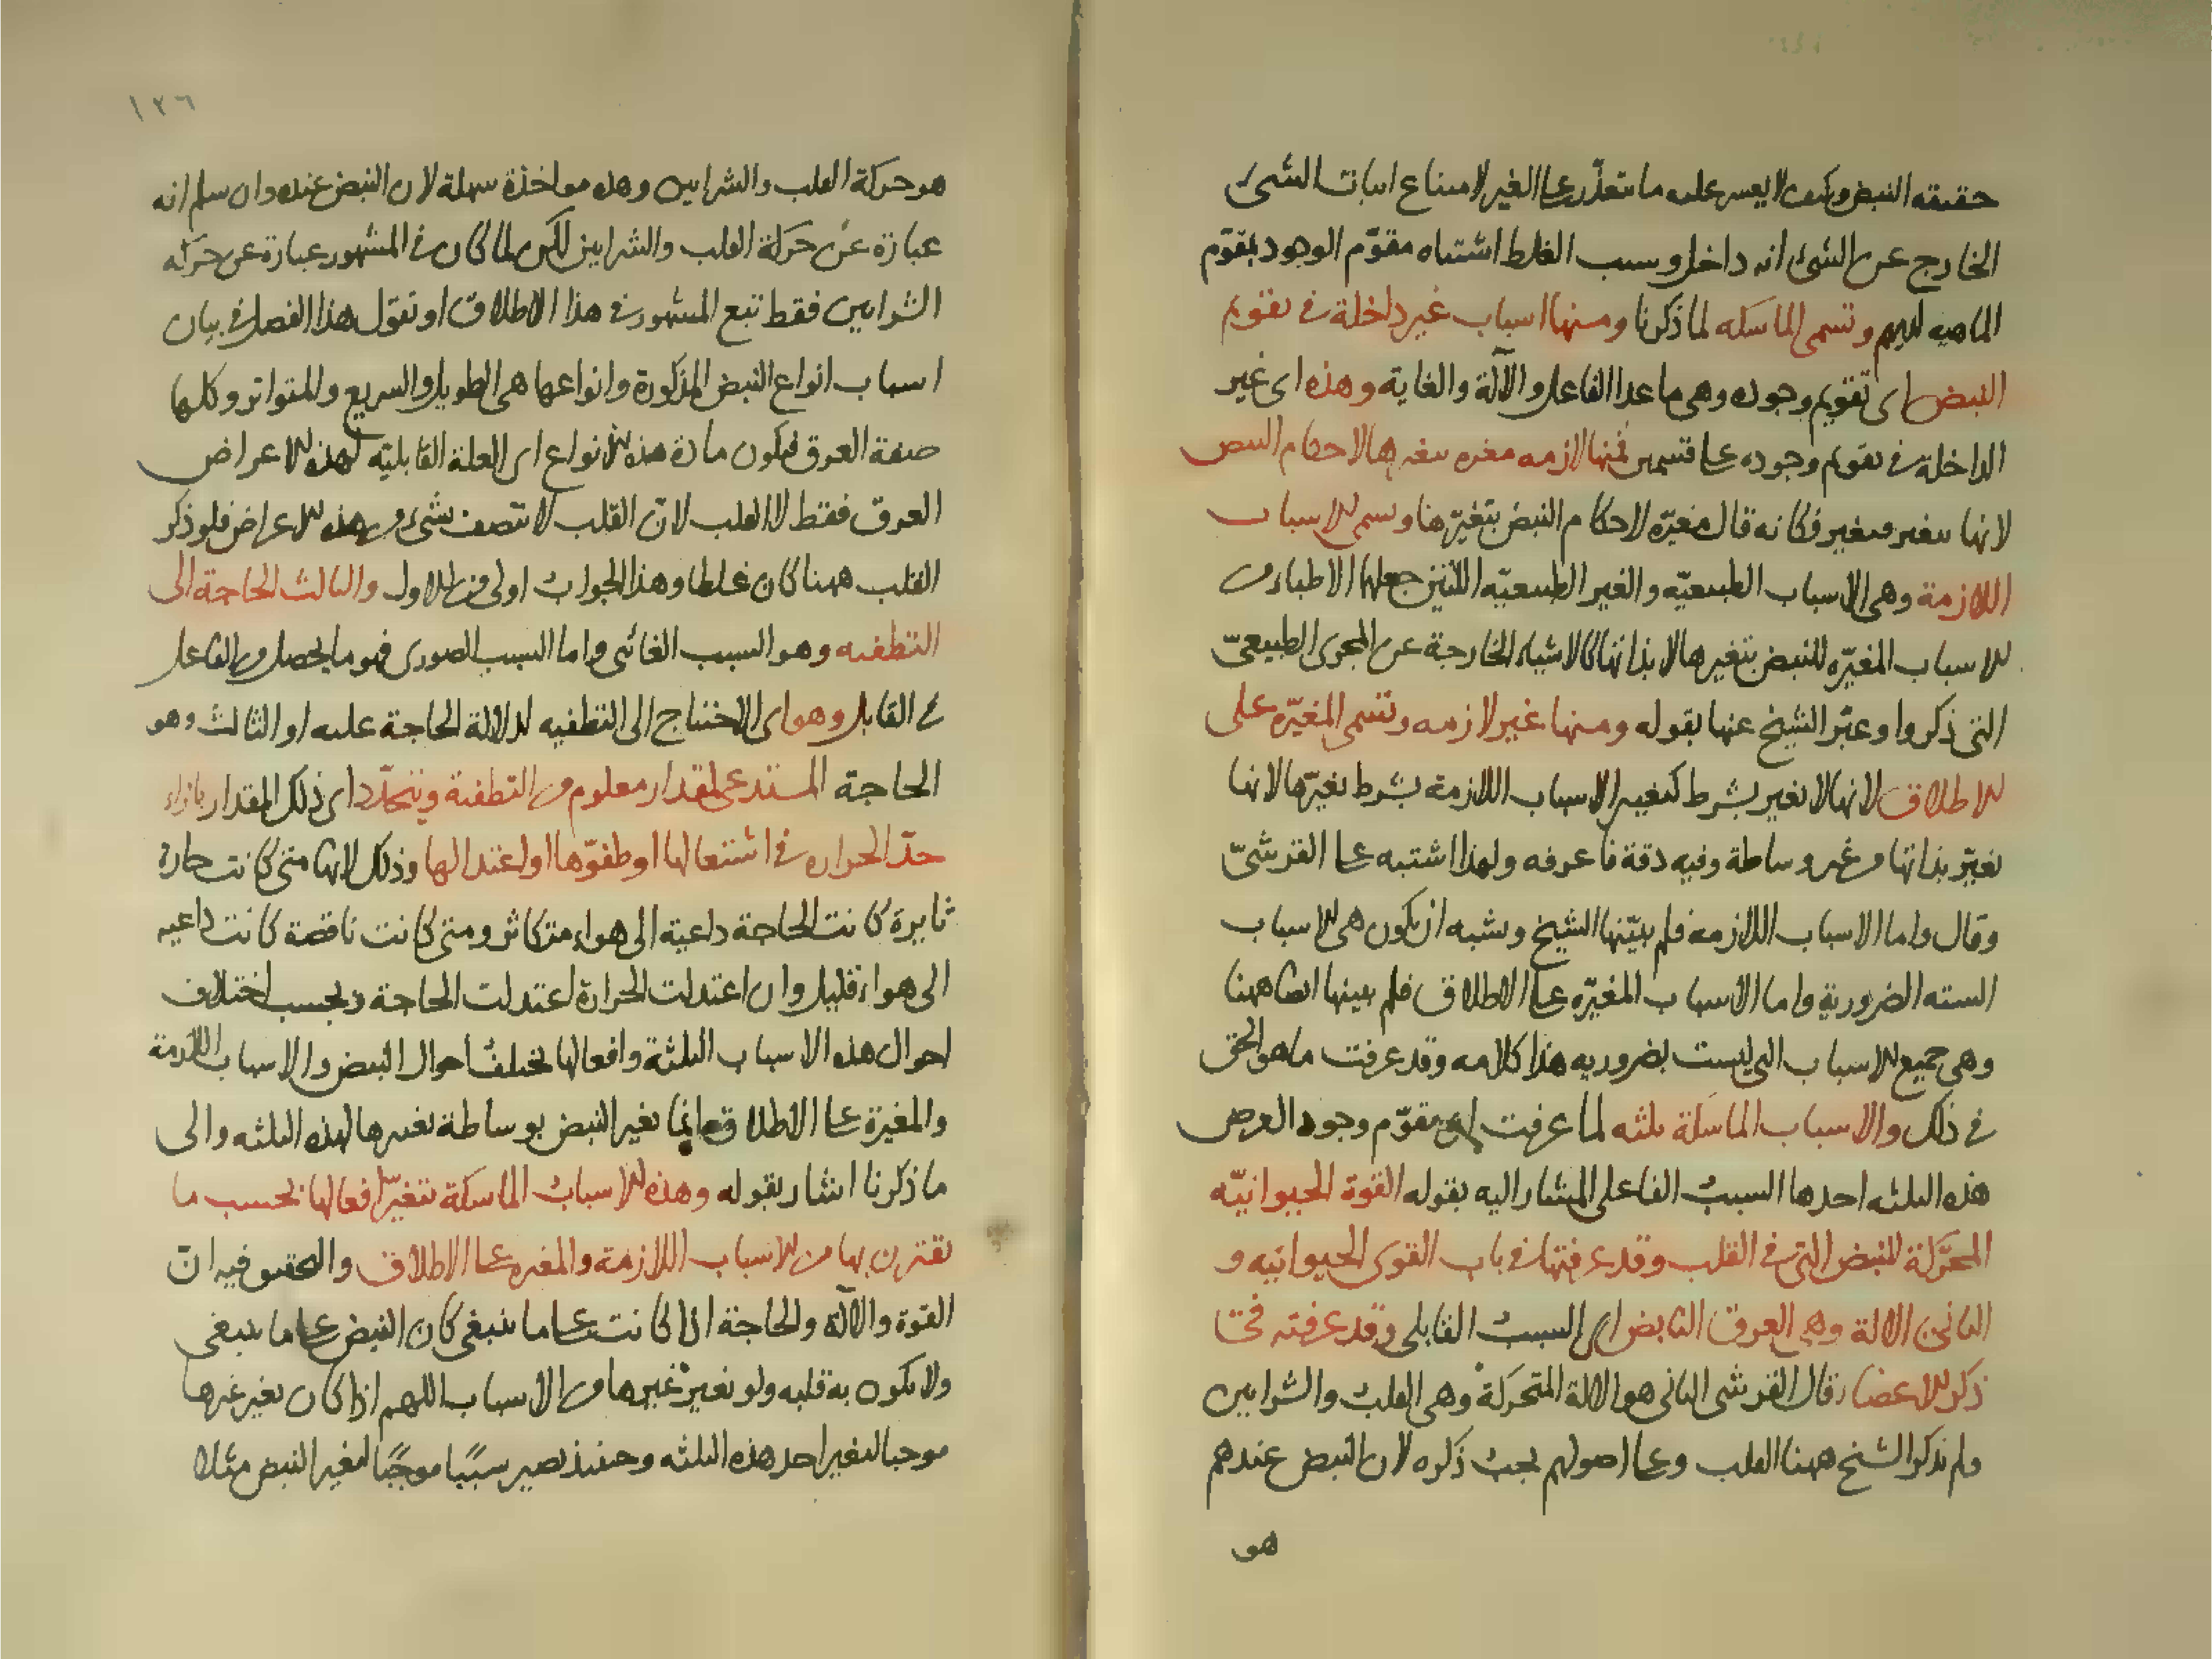 حقيقه النبض وكيف لا يعسر عليه ما يتعذر على الغير لامتناع اثبات الشيء
الخارج عن الشيء انه داخل وسبب الغلط اشتباه مقوّم الوجود بمقوّم
الماهيه لديهم وتسمى الماسكه لما ذكرنا ومنها اسباب غير داخلة في تقويم
النبض اى تقويم وجوده وهى ما عدا الفاعل والآلة والغاية وهذه اى غير
الداخلة في تقويم وجوده على قسمين فمنها لازمه مغيره بتغيرها لاحكام النبض
لانها تتغير فتغير فكانه قال مغيّره لاحكام النبض بتغيّرها وتسمى الاسباب
اللازمة وهى الاسباب الطبيعيّه والغير الطبيعيّه اللتين جعلها الاطباء من
الاسباب المغيّره للنبض بتغيرها لا بذاتها كالاشياء الخارجة عن المجرى الطبيعىّ
التى ذكروا وعبّر الشيخ عنها بقوله ومنها غير لازمه وتسمى المغيّره على
الاطلاق لانها لا تغير بشرط كتغيير الاسباب اللازمة بشرط تغيّرها لانها
تغيّر بذاتها من غير وساطة وفيه دقة فاعرفه ولهذا اشتبه على القرشىّ
وقال واما الاسباب اللازمه فلم يبيّنها الشيخ ويشبه ان يكون هى الاسباب
السته الضرورية واما الاسباب المغيّره على الاطلاق فلم يبينها ايضا ههنا
وهى جميع الاسباب التى ليست بضروريه هذا كلامه وقد عرفت ما هو الحق
في ذلك والاسباب الماسكة ثلثه لما عرفت ان مقوّم وجود العرض
هذه الثلثه احدها السبب الفاعلى المشار اليه بقوله القوة الحيوانيّه
المحرّكة للنبض التى في القلب وقد عرفتها في باب القوى الحيوانيه و
الثانى الالة وهى العرق النابض اى السبب القابلى وقد عرفته في
ذكر الاعضاء وقال القرشى الثانى هو الالة المتحركة وهى القلب والشرايين
ولم يذكر الشيخ ههنا القلب وعلى اصولهم يجب ذكره لان النبض عندهم
هو
١٣٦
هو حركة القلب والشرايين وهذه مواخذة سهلة لان النبض عنده وان سلم انه
عبارة عن حركة القلب والشرايين لكن لما كان في المشهور عبارة عن حركة
الشرايين فقط تبع المشهور في هذا الاطلاق او نقول هذا الفصل في بيان
اسباب انواع النبض المذكورة وانواعها هى الطويل والسريع والمتواتر وكلها
صفة العرق فيكون مادة هذه الانواع اى العلة القابليّه لهذه الاعراض
العرق فقط لا القلب لانّ القلب لا تتصف بشيء من هذه الاعراض فلو ذكر
القلب ههنا كان غلطا وهذا الجواب اولى من الاول والثالث الحاجة الى
التطفئه وهو السبب الغائى واما السبب الصورى فهو ما يحصل من الفاعل
في القابل وهو اى الاحتياج الى التطفيه لدلالة الحاجة عليه او الثالث وهو
الحاجة المستدعى لمقدار معلوم من التطفئة ويتحدّد اى ذلك المقدار بازاء
حدّ الحراره في اشتعالها او طفوّها او اعتدالها وذلك لانها متى كانت حارة
ثايرة كانت الحاجة داعية الى هواء متكاثر ومتى كانت ناقصة كانت داعيه
الى هواء قليل وان اعتدلت الحرارة اعتدلت الحاجة وبحسب اختلاف
احوال هذه الاسباب الثلثة وافعالها تختلف احوال النبض والاسباب اللازمة
والمغيرة على الاطلاق فانما تغير النبض بوساطة تغيرها لهذه الثلثه والى
ما ذكرنا اشار بقوله وهذه الاسباب الماسكة تتغيّر افعالها بحسب ما
تقترن بها من الاسباب اللازمة والمغيره على الاطلاق والتحقيق فيه انّ
القوة والآلة والحاجة اذا كانت على ما ينبغى كان النبض على ما ينبغى
ولا يكون به قلبه ولو تغير غيرها من الاسباب اللهم اذا كان تغير غيرها
موجبا لتغير احد هذه الثلثه وحينئذ تصير سببًا موجبًا لتغير النبض مثلا